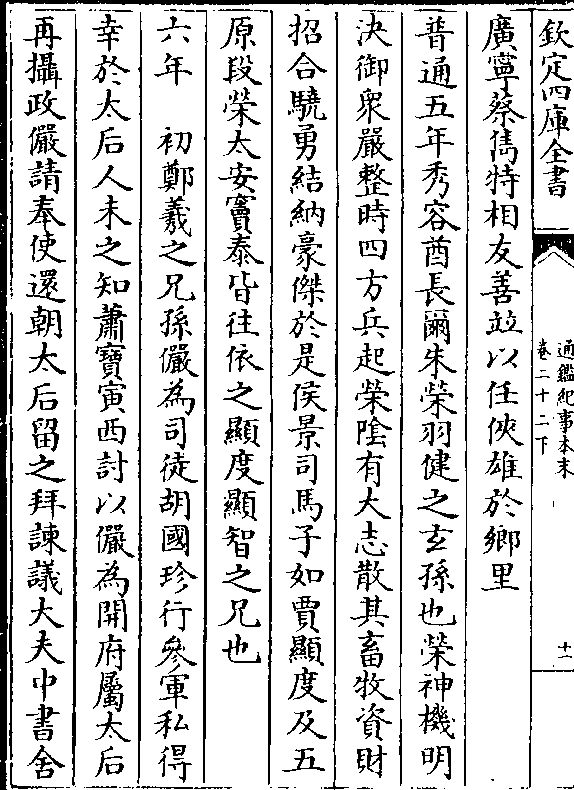 欽定四庫全書
通鑑紀事本末
卷二十二下
十一
廣寧蔡儁特相友善竝以任俠雄於鄉里
普通五年秀容酋長爾朱榮羽健之玄孫也榮神機明
決御衆嚴整時四方兵起榮隂有大志散其畜牧資財
招合驍勇結納豪傑於是侯景司馬子如賈顯度及五
原段榮太安竇泰皆往依之顯度顯智之兄也
六年　初鄭羲之兄孫儼為司徒胡國珍行參軍私得
幸於太后人未之知蕭寶寅西討以儼為開府屬太后
再攝政儼請奉使還朝太后留之拜諫議大夫中書舍